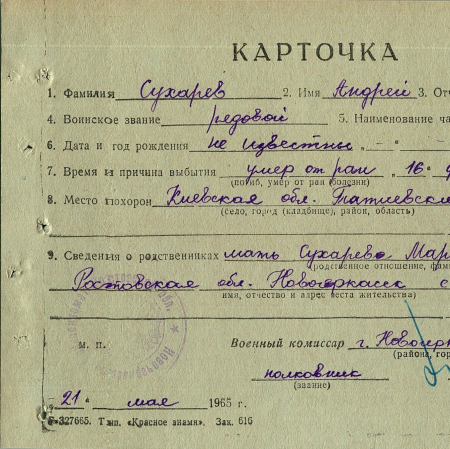 КАРТОЧКА
1. Фамилия Сухарев 2. Имя Андрей 3. Отч
4. Воинское звание редовой 5. Наименование ча
6. Дата и год рождения не известны „ - „ -
7. Время и причина выбытия умер от ран „16"
(погиб, умер от ран (болезни)
8. Место похорон Киевская обл. Татиевско
(село, город (кладбище), район, область)
9. Сведения о родственниках мать Сухарева Мар
(родственное отношение, фам
Ростовская обл. Новочеркасск с
имя, отчество и адрес места жительства)
м. п. Военный комиссар г. Новочерк
(района, гор
полковник
(звание)
„21" мая 1965 г.
Б-327665. Тип. «Красное знамя». Зак. 616